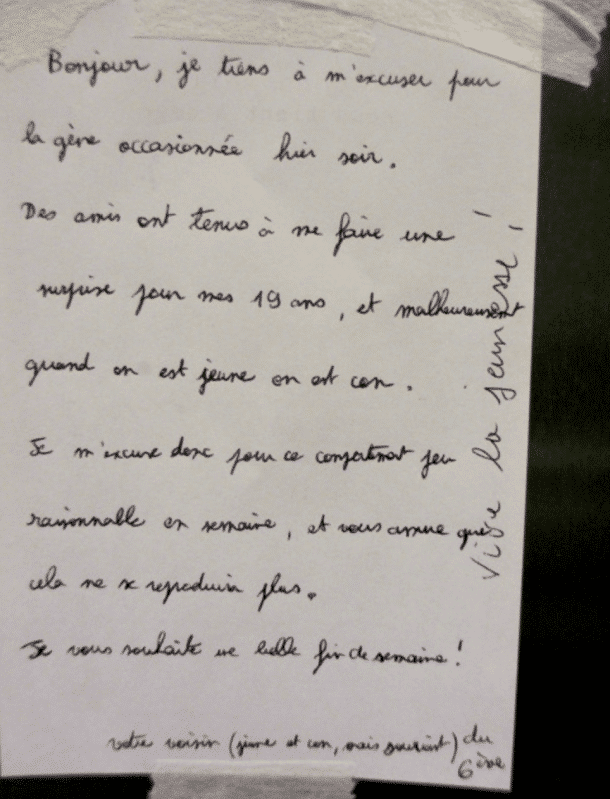 Bonjour, je tiens à m'excuser pour
la gène occasionnée hier soir.
Des amis ont tenus à me faire une
surprise pour mes 19 ans, et malheureusement
quand on est jeune on est con.
Je m'excuse donc pour ce comportement peu
raisonnable en semaine, et vous assure que
cela ne se reproduira plus.
Je vous souhaite une belle fin de semaine!
votre voisin (jeune et con, mais souriant) du
6ème
Vive la jeunesse!
!